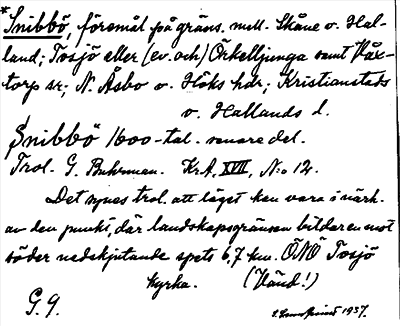 *Snibbö, föremål på gräns. mell. Skåne o. Hal-
land; Tosjö eller (ev. och) Örkelljunga samt Vå x-
torp sr; N. Åsbo o. Höks hdr; Kristianstads
o. Hallands l.
Snibbö 1600-tal. senare del.
Trol. G. Buhrman. Kr.A. XVII, N:o 12.
Det synes trol. att läget kan vara i närh.
av den punkt, där landskapsgränsen bildar en mot
söder nedskjutande spets 6,7 km. ÖNÖ Tosjö
kyrka. (Vänd!)
G. 9. 1937.